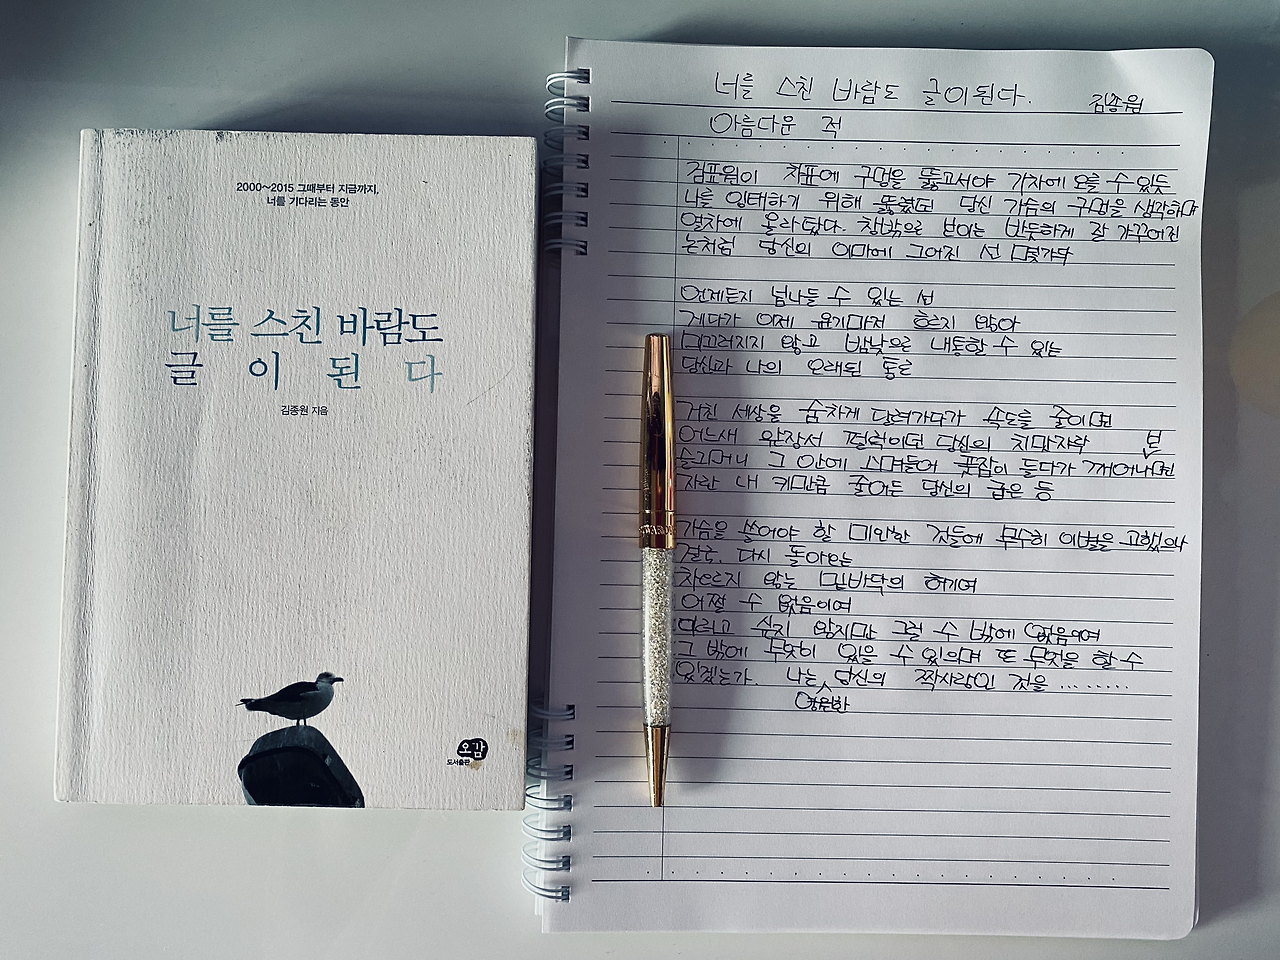 2000~2015 그때부터 지금까지,
너를 기다리는 동안
너를 스친 바람도
글이 된다
김종원 지음
오감
도서출판
너를 스친 바람도 글이 된다.
김종원
아름다운 적
검표원이 차표에 구멍을 뚫고서야 기차에 오를 수 있듯
나를 잉태하기 위해 뚫렸던 당신 가슴의 구멍을 생각하며
열차에 올라탔다. 창밖으로 보이는 반듯하게 잘 가꾸어진
논처럼 당신의 이마에 그어진 선 몇가닥
언제든지 넘나들 수 있는 선
게다가 이제 윤기마저 흐르지 않아
미끄러지지 않고 밤낮으로 내통할 수 있는
당신과 나의 오래된 통로
거친 세상을 숨차게 달려가다가 속도를 줄이면
어느새 앞장서 펄럭이던 당신의 치맛자락
본
슬그머니 그 안에 스며들어 꽃잠이 들다가 깨어나면
자란 내 키만큼 줄어든 당신의 굽은 등
가슴을 쓸어야 할 미안한 것들에 무수히 이별을 고했으나
결국, 다시 돌아오는
차오르지 않는 밑바닥의 허기여
어쩔 수 없음이여
그러고 싶진 않지만 그럴 수 밖에 없음이여
그 밖에 무엇이 있을 수 있으며 또 무엇을 할 수
있겠는가. 나는 당신의 짝사랑인 것을 ........
영원한